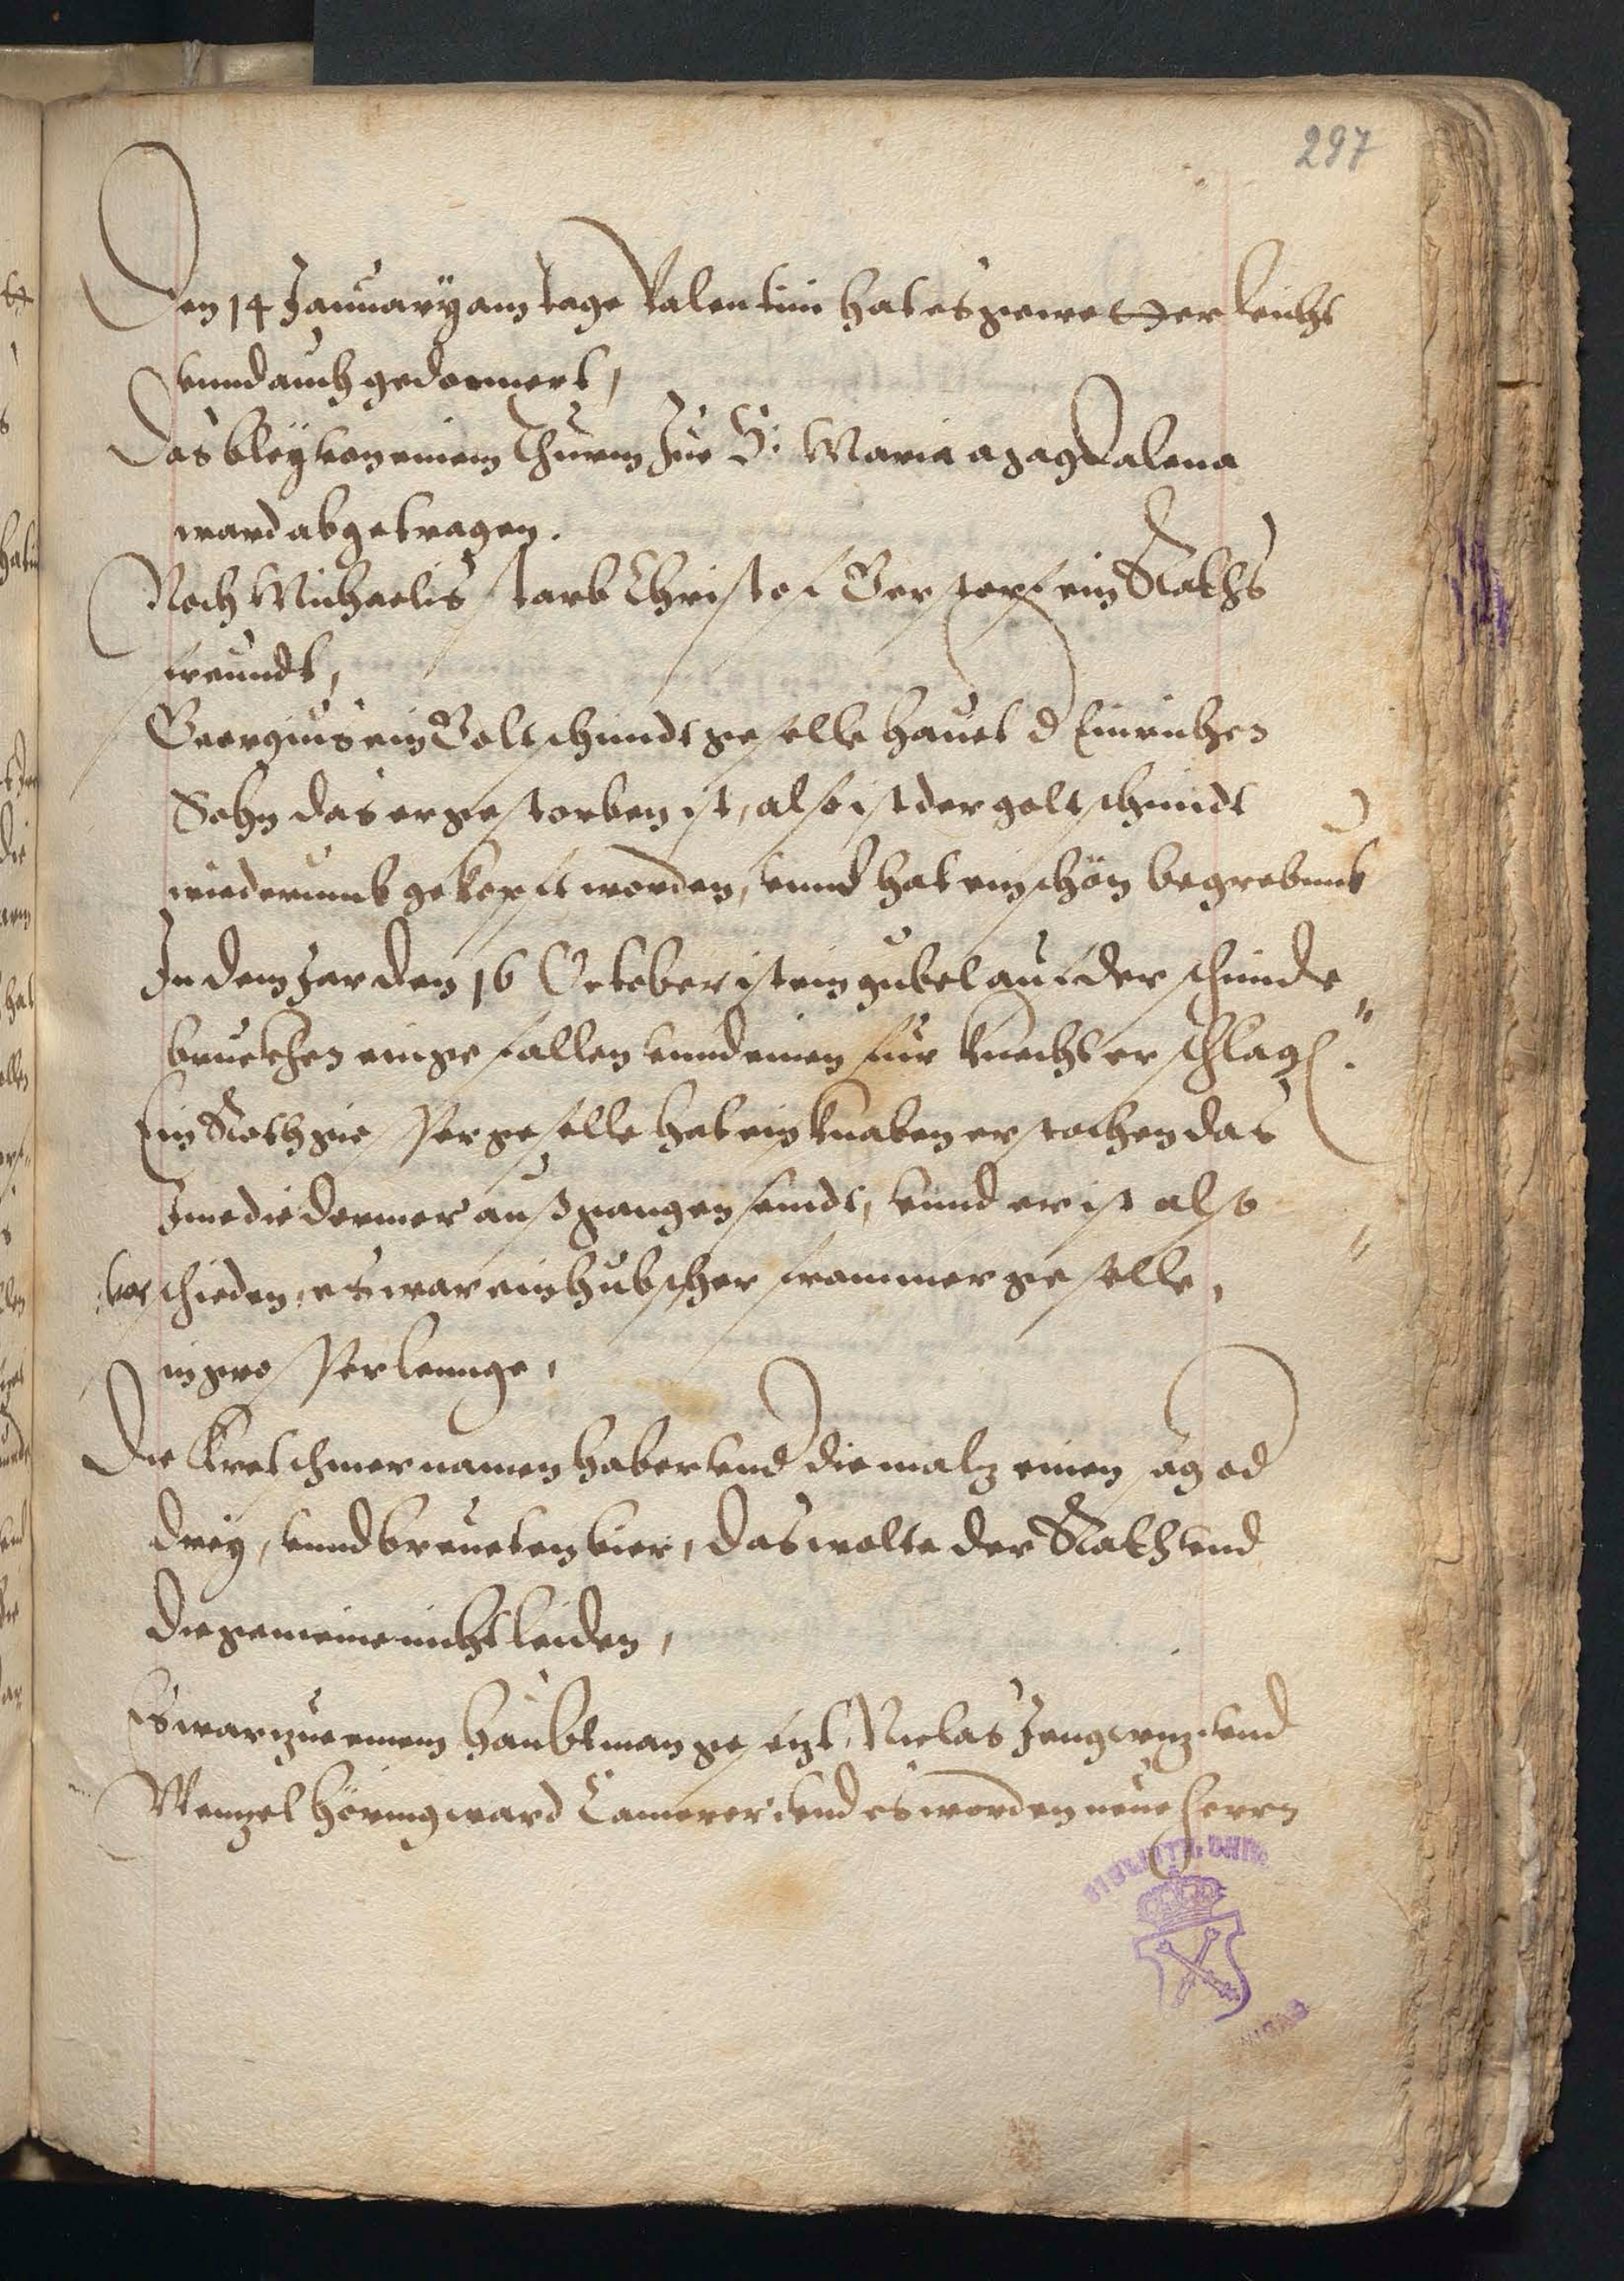 297
Den 14 Januarÿ am tage Valentini hat es gewetterleicht
vnnd auch gedonnert,
Das bleÿ von einem Thurm zue S: Maria Magdalena
ward abgetragen.
Noch Michaelis starb Christof ein Raths
freundt,
Georgius ein Goltschmidt geselle hauet d
Sohn das er gestorben ist, also ist der goltschmidt
wiederumb gekopft worden, vnnd hat ein schön begrebnus
In dem Jar den 16 October ist ein gubel auf der schmide
brucken eingefallen vnnd einen fur knecht erschlag.
Ein Rothgiesser geselle hat ein knaben erstochen das
Jme die dermer außgangen seindt, vnnd er ist also
verschieden, es war ein hubscher frommer geselle,
in grosser lennge,
Die Kretschmer namen haber vnd die maltz einen od
dreÿ, vnnd breueten bier, das wolte der Rath vnd
die gemeine nicht leiden,
Es war zue einem haubtman gesetzt Niclas vnd
Wentzel Höring ward Camerer vnd es worden neue herrn